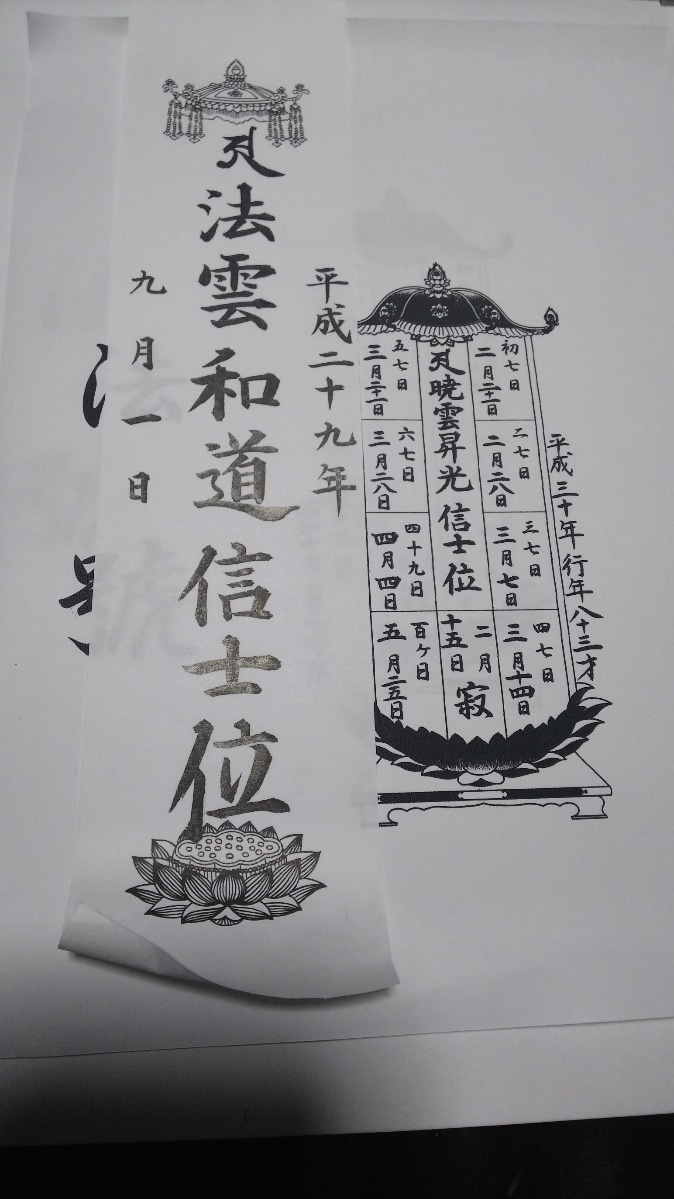 平成二十九年
法雲和道信士位
九月一日
平成三十年 行年八十三才
初七日
二月二一日
二七日
二月二八日
三七日
三月七日
四七日
三月十四日
暁雲昇光信士位
二月
十五日
寂
五七日
三月二一日
六七日
三月二八日
四十九日
四月四日
百ケ日
五月二五日